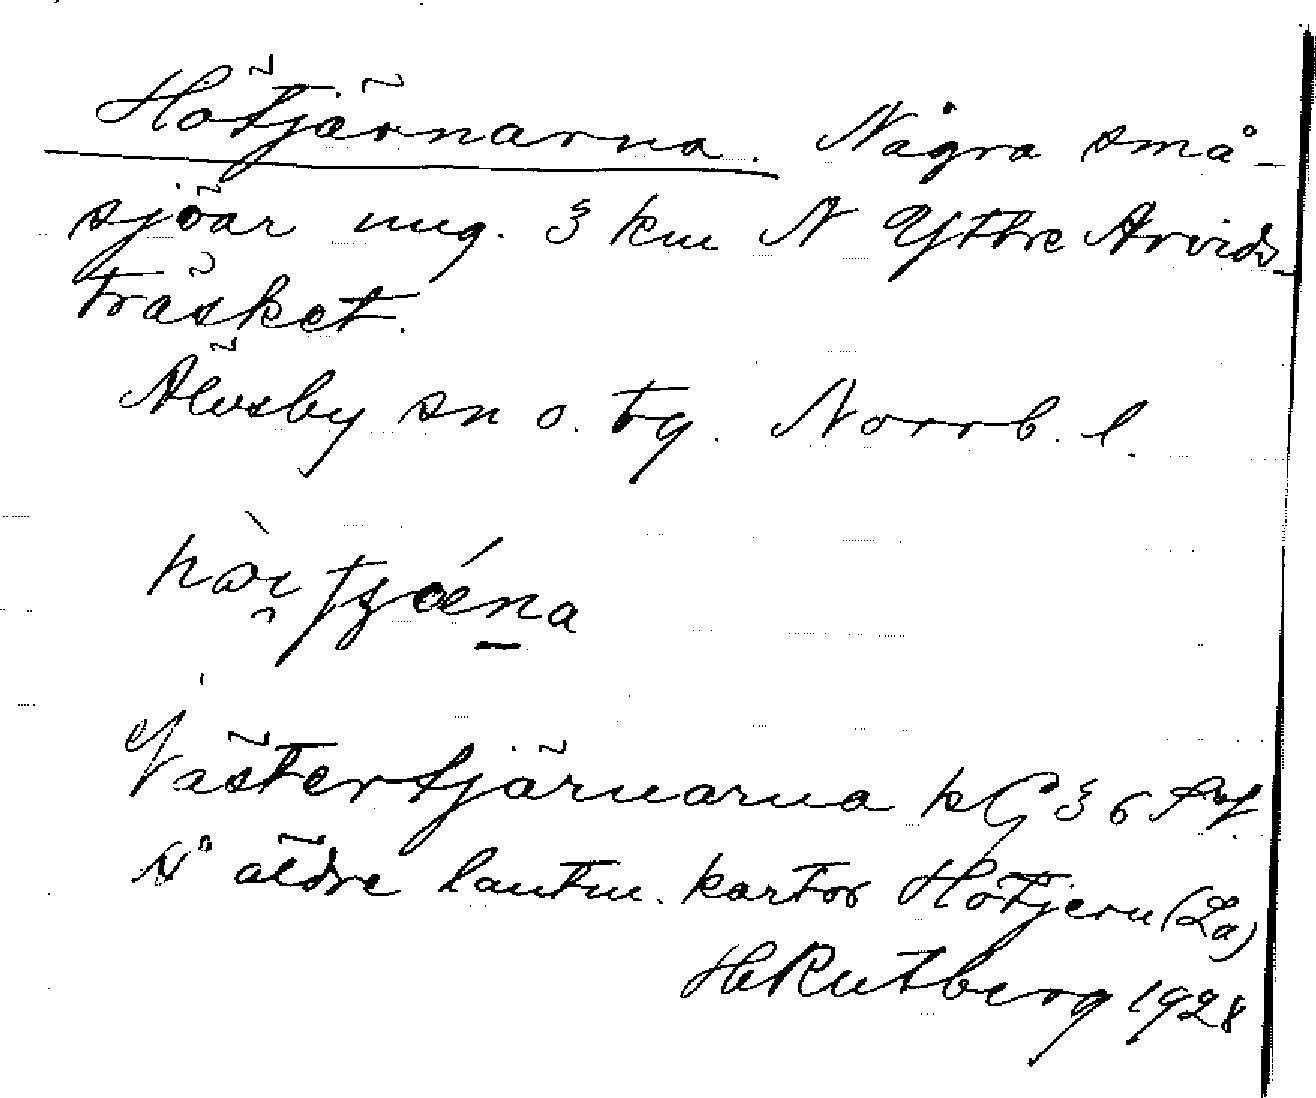 Hötjärnarna. Några små-
sjöar ung. 3 km N Yttre Arvids-
träsket.
Älvsby sn o. tg. Norrb. l.
Västertjärnarna kG
På äldre lantm. kartor Hötjern (La)
HRutberg 1928